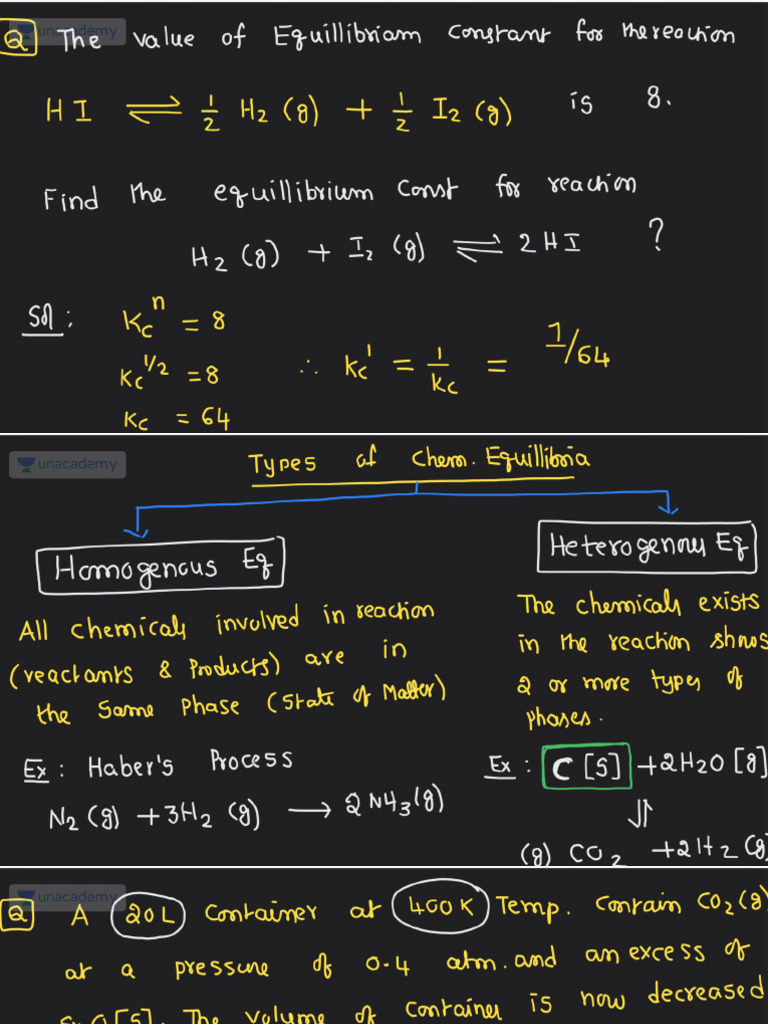 unacademy
Q The value of Equillibriam constant for the reaction
HI ⇌ 1/2 H2 (g) + 1/2 I2 (g) is 8.
Find the equillibrium const for reaction
H2 (g) + I2 (g) ⇌ 2HI ?
Sol: Kc^n = 8
Kc^1/2 = 8 ∴ Kc' = 1/Kc = 1/64
Kc = 64
unacademy
Types of Chem. Equillibria
Homogenous Eq
Heterogenous Eq
All chemicals involved in reaction
(reactants & Products) are in
the same Phase (State of Matter)
Ex: Haber's Process
N2 (g) + 3H2 (g) → 2NH3(g)
The chemicals exists
in the reaction shows
2 or more types of
phases.
Ex: C [S] + 2H2O [g]
⇌
(g) CO2 + 2H2 (g)
unacademy
Q A 20L Container at 400K Temp. Contain CO2(g)
at a pressure of 0.4 atm. and an excess of
SrO[S]. The volume of container is now decreased